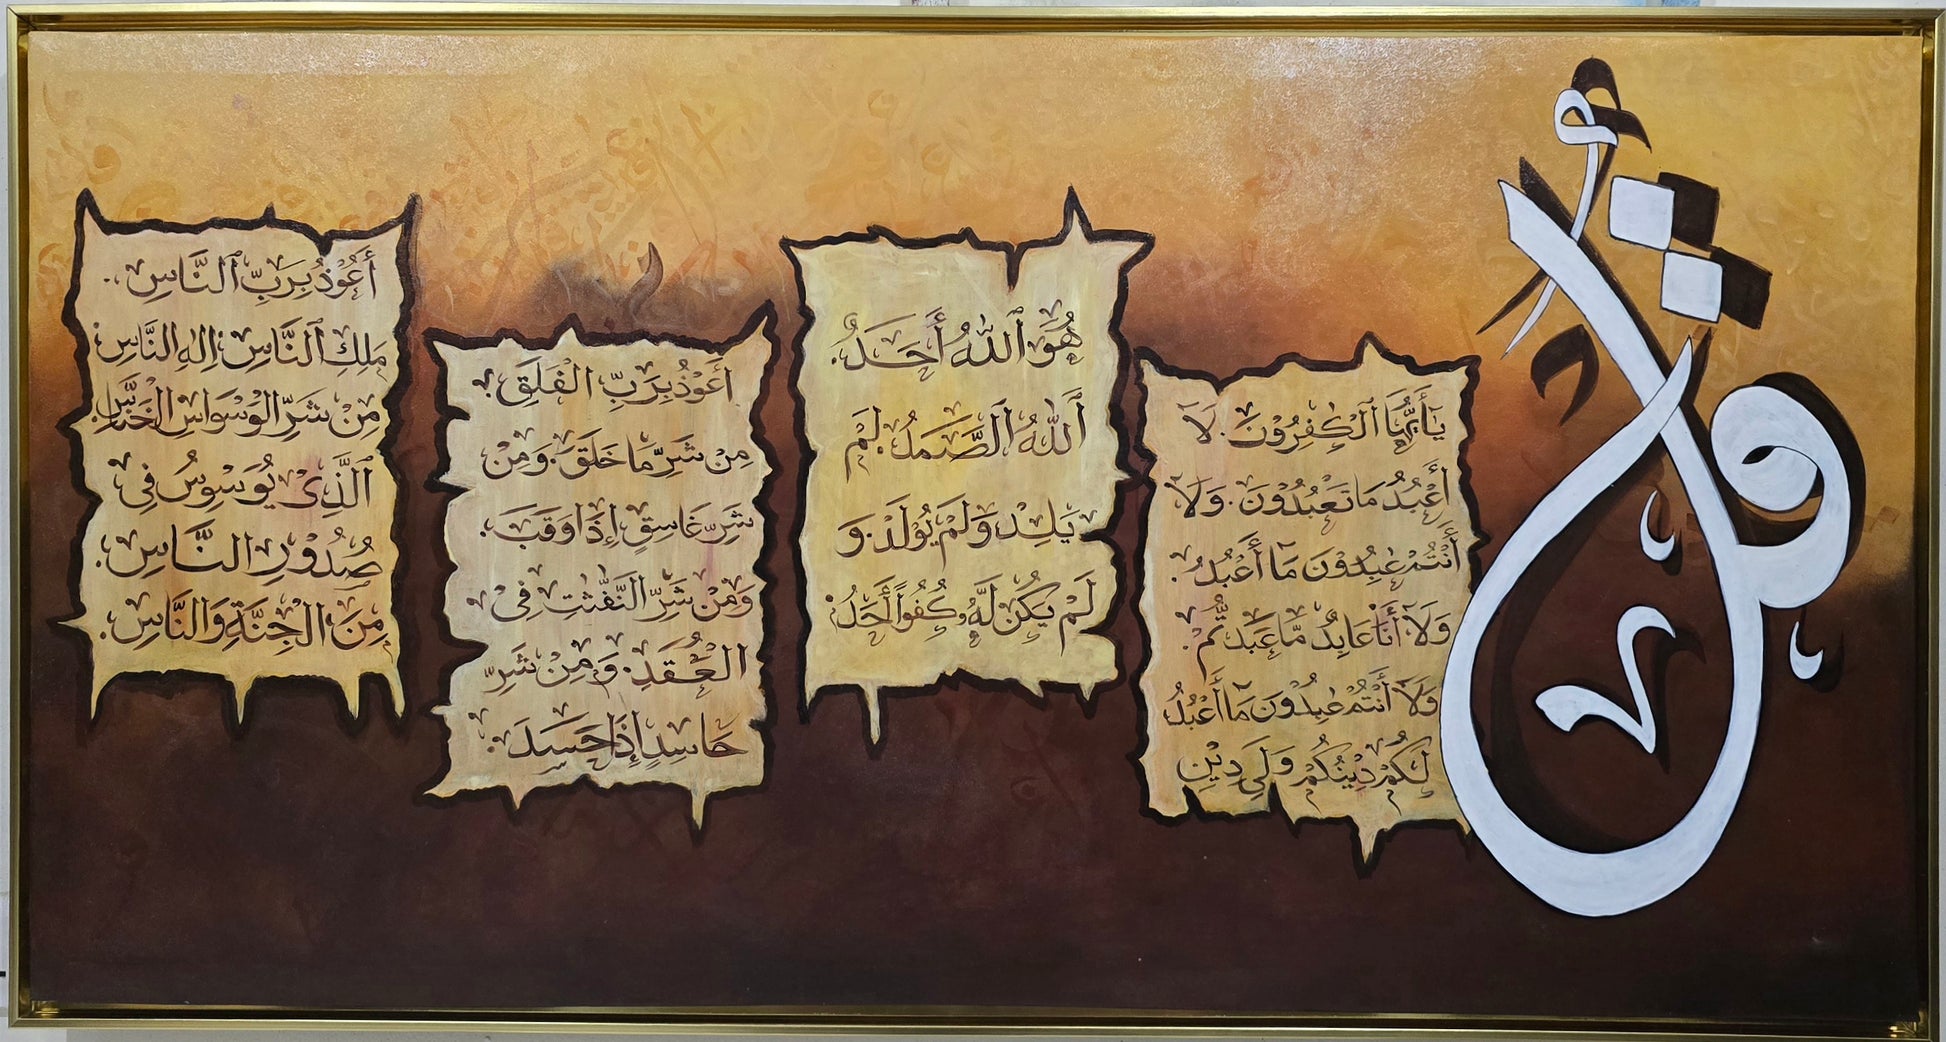 قُلْ
يَٰٓأَيُّهَا ٱلْكٰفِرُوْنَ. لَآ
أَعْبُدُ مَا تَعْبُدُوْنَ. وَلَآ
أَنْتُمْ عٰبِدُوْنَ مَآ أَعْبُدُ.
وَلَآ أَنَا عَابِدٌ مَّا عَبَدْتُّمْ.
وَلَآ أَنْتُمْ عٰبِدُوْنَ مَآ أَعْبُدُ
لَكُمْ دِيْنُكُمْ وَلِيَ دِيْنِ
هُوَ ٱللّٰهُ أَحَدٌ.
ٱللّٰهُ ٱلصَّمَدُ. لَمْ
يَلِدْ وَلَمْ يُوْلَدْ. وَ
لَمْ يَكُنْ لَّهُۥ كُفُوًا أَحَدٌ.
أَعُوْذُ بِرَبِّ الْفَلَقِ.
مِنْ شَرِّ مَا خَلَقَ. وَمِنْ
شَرِّ غَاسِقٍ إِذَا وَقَبَ.
وَمِنْ شَرِّ النَّفّٰثٰتِ فِىْ
الْعُقَدِ. وَمِنْ شَرِّ
حَاسِدٍ إِذَا حَسَدَ.
أَعُوْذُ بِرَبِّ ٱلنَّاسِ.
مَلِكِ ٱلنَّاسِ. إِلٰهِ النَّاسِ.
مِنْ شَرِّ الْوَسْوَاسِ الْخَنَّاسِ.
ٱلَّذِىْ يُوَسْوِسُ فِى
صُدُوْرِ النَّاسِ.
مِنَ الْجِنَّةِ وَالنَّاسِ.